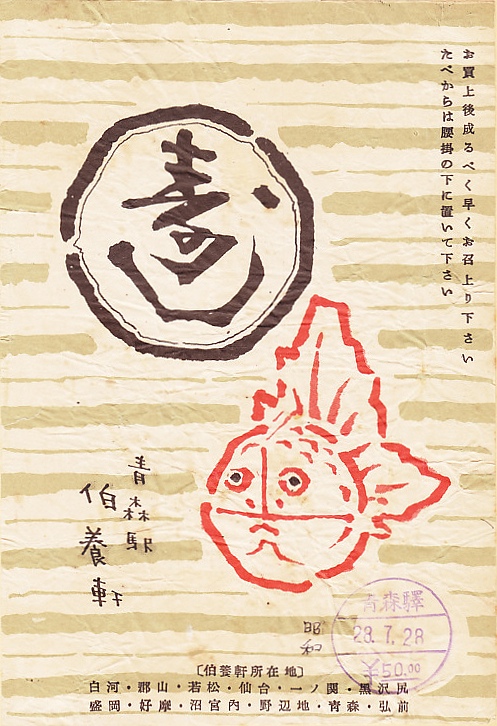 お買上後成るべく早くお召上り下さい
たべからは腰掛の下に置いて下さい
寿し
青森駅
伯養軒
昭和
青森驛
28.7.28
¥50.00
〔伯養軒所在地〕
白河・郡山・若松・仙台・一ノ関・黒沢尻
盛岡・好摩・沼宮内・野辺地・青森・弘前